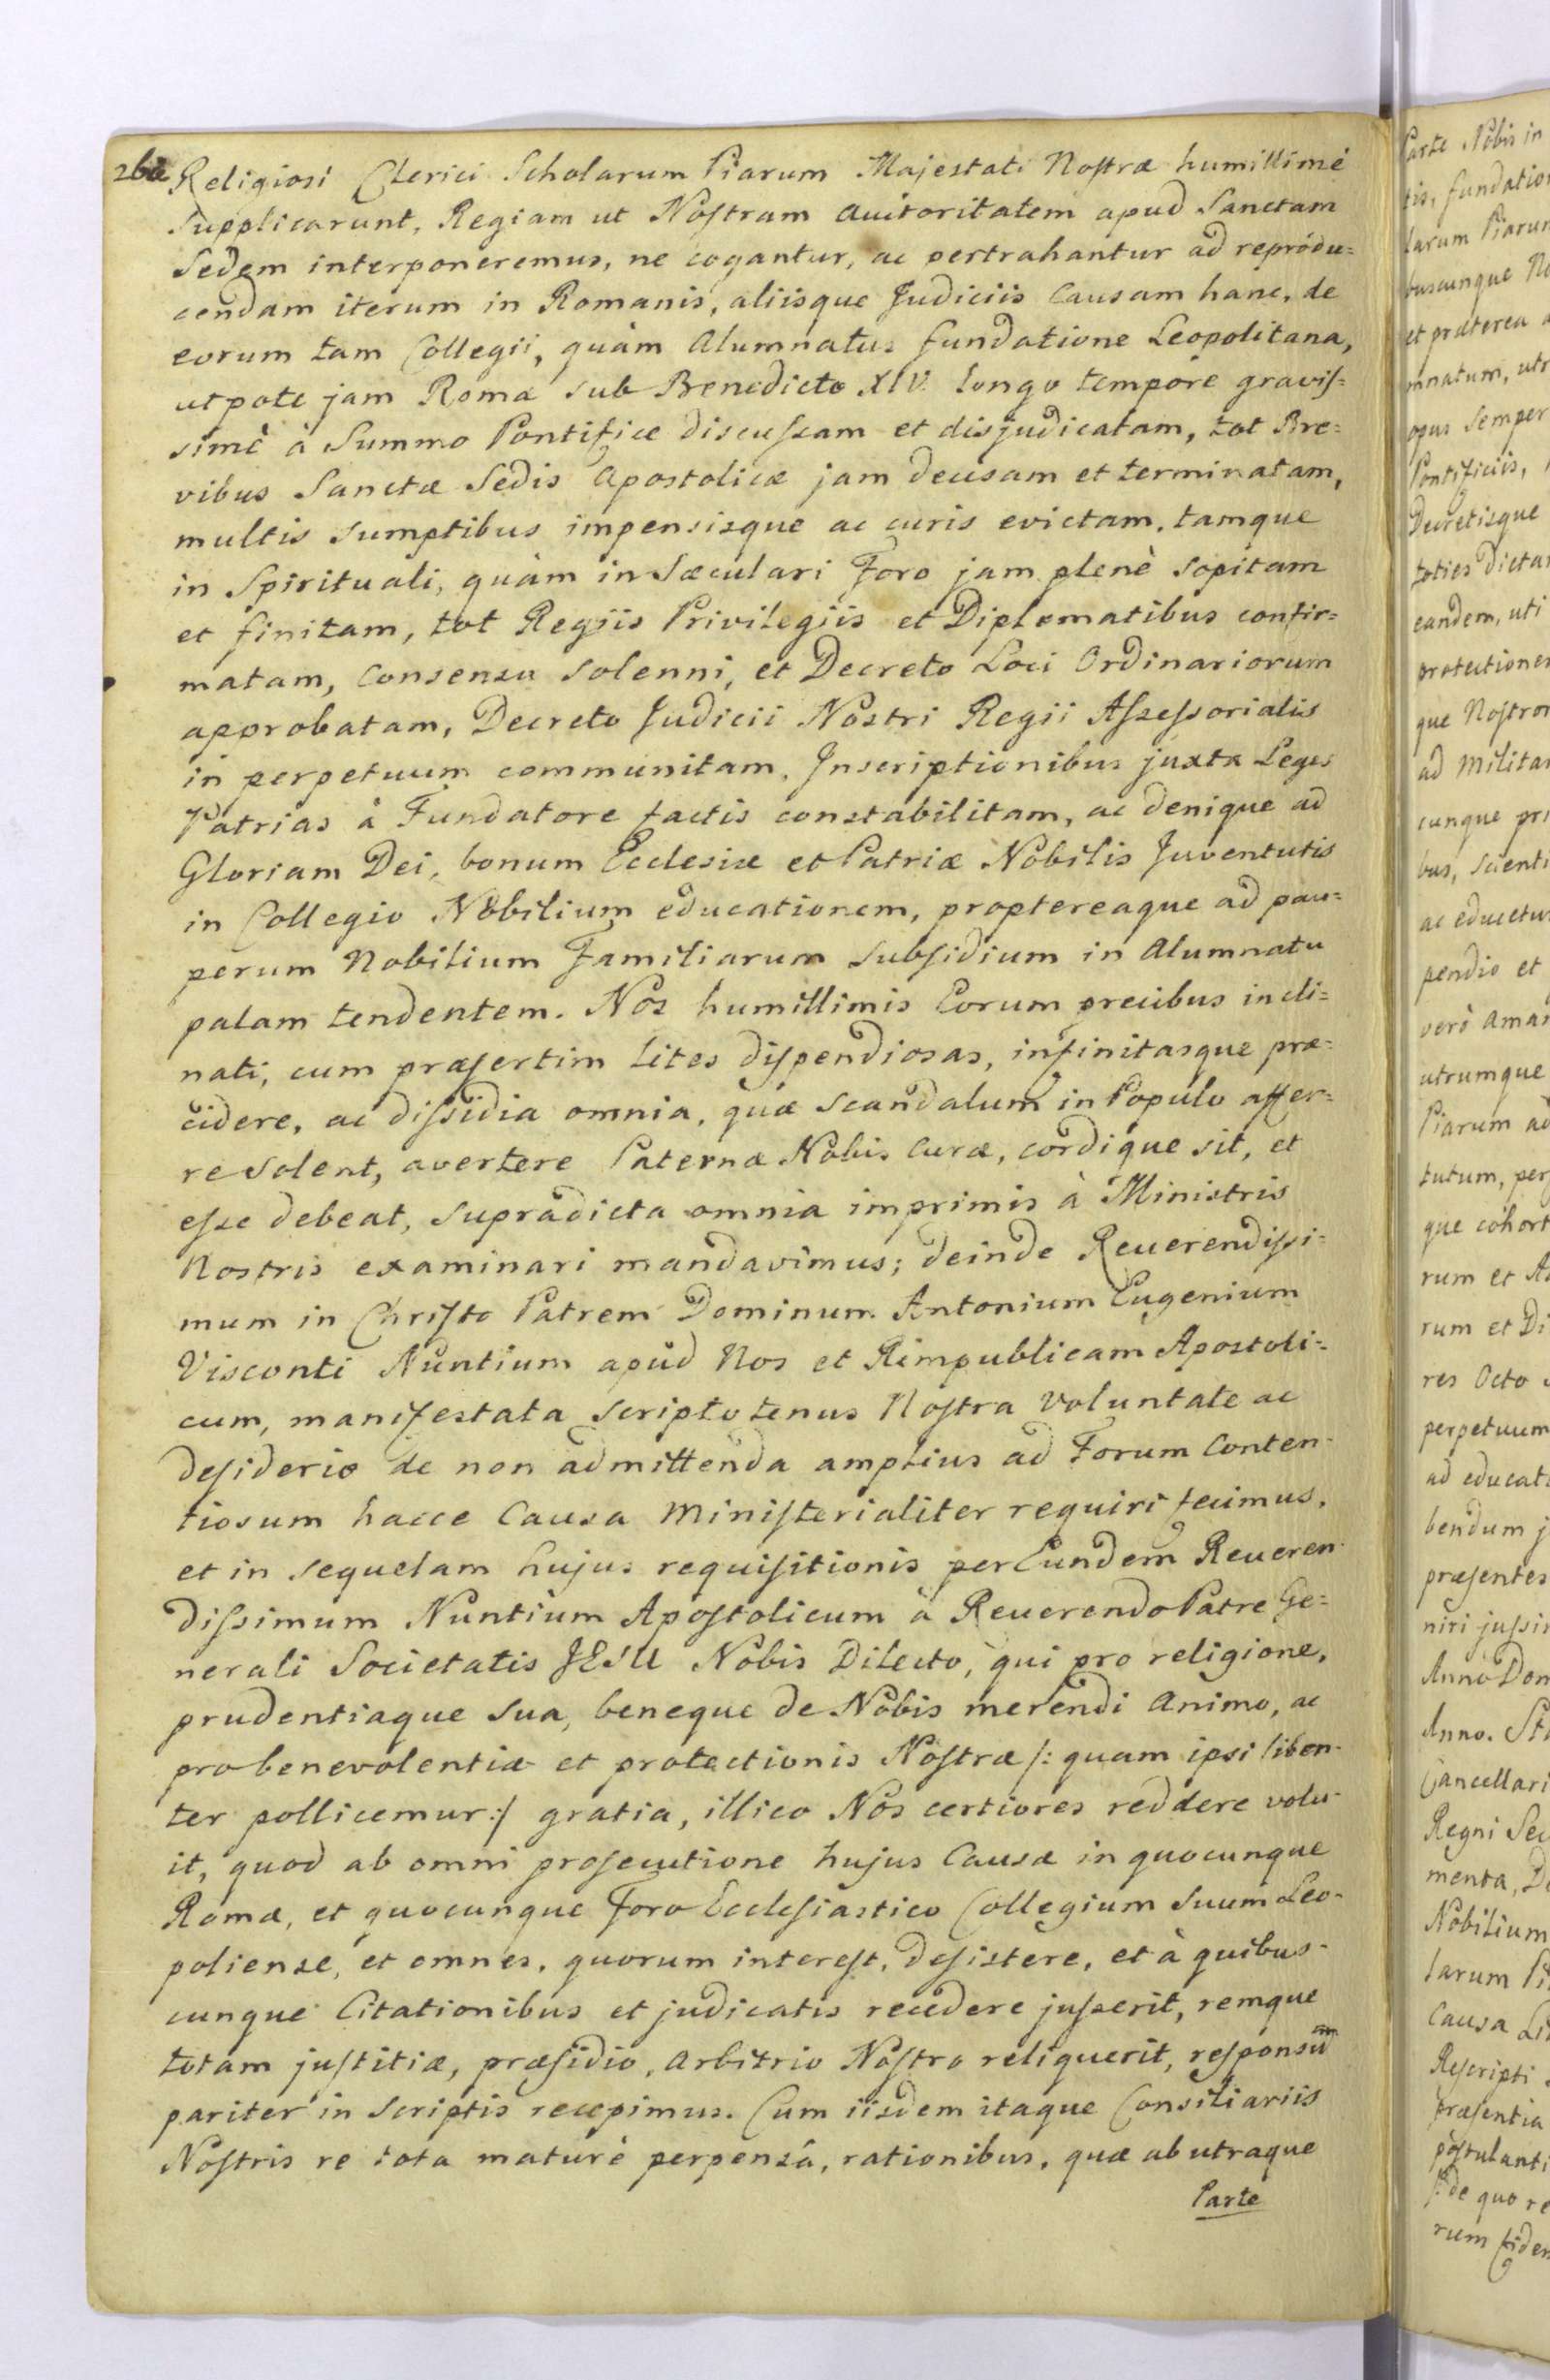 Religiosi Clerici Scholarum Piarum Majestati Nostræ humillimè
supplicarunt, Regiam ut Nostram auctoritatem apud Sanctam
Sedem interponeremus, ne cogantur, ac pertrahantur ad reprodu=
cendam iterum in Romanis, aliisque Judiciis Causam hanc, de
eorum tam Collegii, quàm Alumnatus fundatione Leopolitana,
utpote jam Romæ sub Benedicto XIV. longo tempore gravis=
simè à Summo Pontifice discussam et disjudicatam, tot Bre=
vibus Sanctæ Sedis Apostolicæ jam decisam et terminatam,
multis sumptibus impensisque ac curis evictam, tamque
in Spirituali, quàm in Sæculari Foro jam plenè sopitam
et finitam, tot Regiis Privilegiis et Diplomatibus confir=
matam, Consensu solenni, et Decreto Loci Ordinariorum
approbatam, Decreto Judicii Nostri Regii Assessorialis
in perpetuum communitam, Inscriptionibus juxta Leges
Patrias à Fundatore factis constabilitam, ac denique ad
Gloriam Dei, bonum Ecclesiæ et Patriæ Nobilis Juventutis
in Collegio Nobilium educationem, proptereaque ad pau=
perum Nobilium Familiarum subsidium in Alumnatu
palam tendentem. Nos humillimis Eorum precibus incli=
nati, cum præsertim Lites dispendiosas, infinitasque præ=
cidere, ac dissidia omnia, quæ scandalum in Populo affer=
re solent, avertere Paternæ Nobis curæ, cordique sit, et
esse debeat, supradicta omnia imprimis à Ministris
Nostris examinari mandavimus; deinde Reuerendissi=
mum in Christo Patrem Dominum Antonium Eugenium
Visconti Nuntium apud Nos et Rimpublicam Apostoli=
cum, manifestata scripto tenus Nostra voluntate ac
desiderio de non admittenda amplius ad Forum Conten-
tiosum hacce Causa Ministerialiter requiri fecimus,
et in sequelam hujus requisitionis per Eundem Reueren-
dissimum Nuntium Apostolicum à Reuerendo Patre Ge=
nerali Societatis JESU Nobis Dilecto, qui pro religione,
prudentiaque sua, beneque de Nobis merendi animo, ac
pro benevolentiæ et protectionis Nostræ /: quam ipsi liben-
ter pollicemur :/ gratia, illico Nos certiores reddere volu-
it, quod ab omni prosecutione hujus Causæ in quocunque
Romæ, et quocunque Foro Ecclesiastico Collegium Suum Leo-
poliense, et omnes, quorum interest, desistere, et à quibus-
cunque Citationibus et judicatis recedere jusserit, remque
totam justitiæ, præsidio, arbitrio Nostro reliquerit, responsũ
pariter in scriptis recepimus. Cum iisdem itaque Consiliariis
Nostris re tota maturè perpensâ, rationibus, quæ ab utraque
Parte
Parte Nobis in
tis, fundatio
larum Piarum
buscunque No
et præterea
mnatum, utr
opus semper
Pontificiis,
Decretisque
toties dicta
eandem, uti
protectionem
que Nostro
ad milita
cunque pri
bus, scienti
ac educetur
pendio et
verò aman
utrumque
Piarum ad
tutum, per
que cohort
rum et A
rum et Di
res Octo
perpetuum
ad educat
bendum j
præsentes
niri jussi
Anno Dom
Anno. St
Cancellari
Regni Sec
menta, D
Nobilium
larum Pi
Causa Li
Rescripti
præsentia
postulanti
/:de quo re
rum fidem